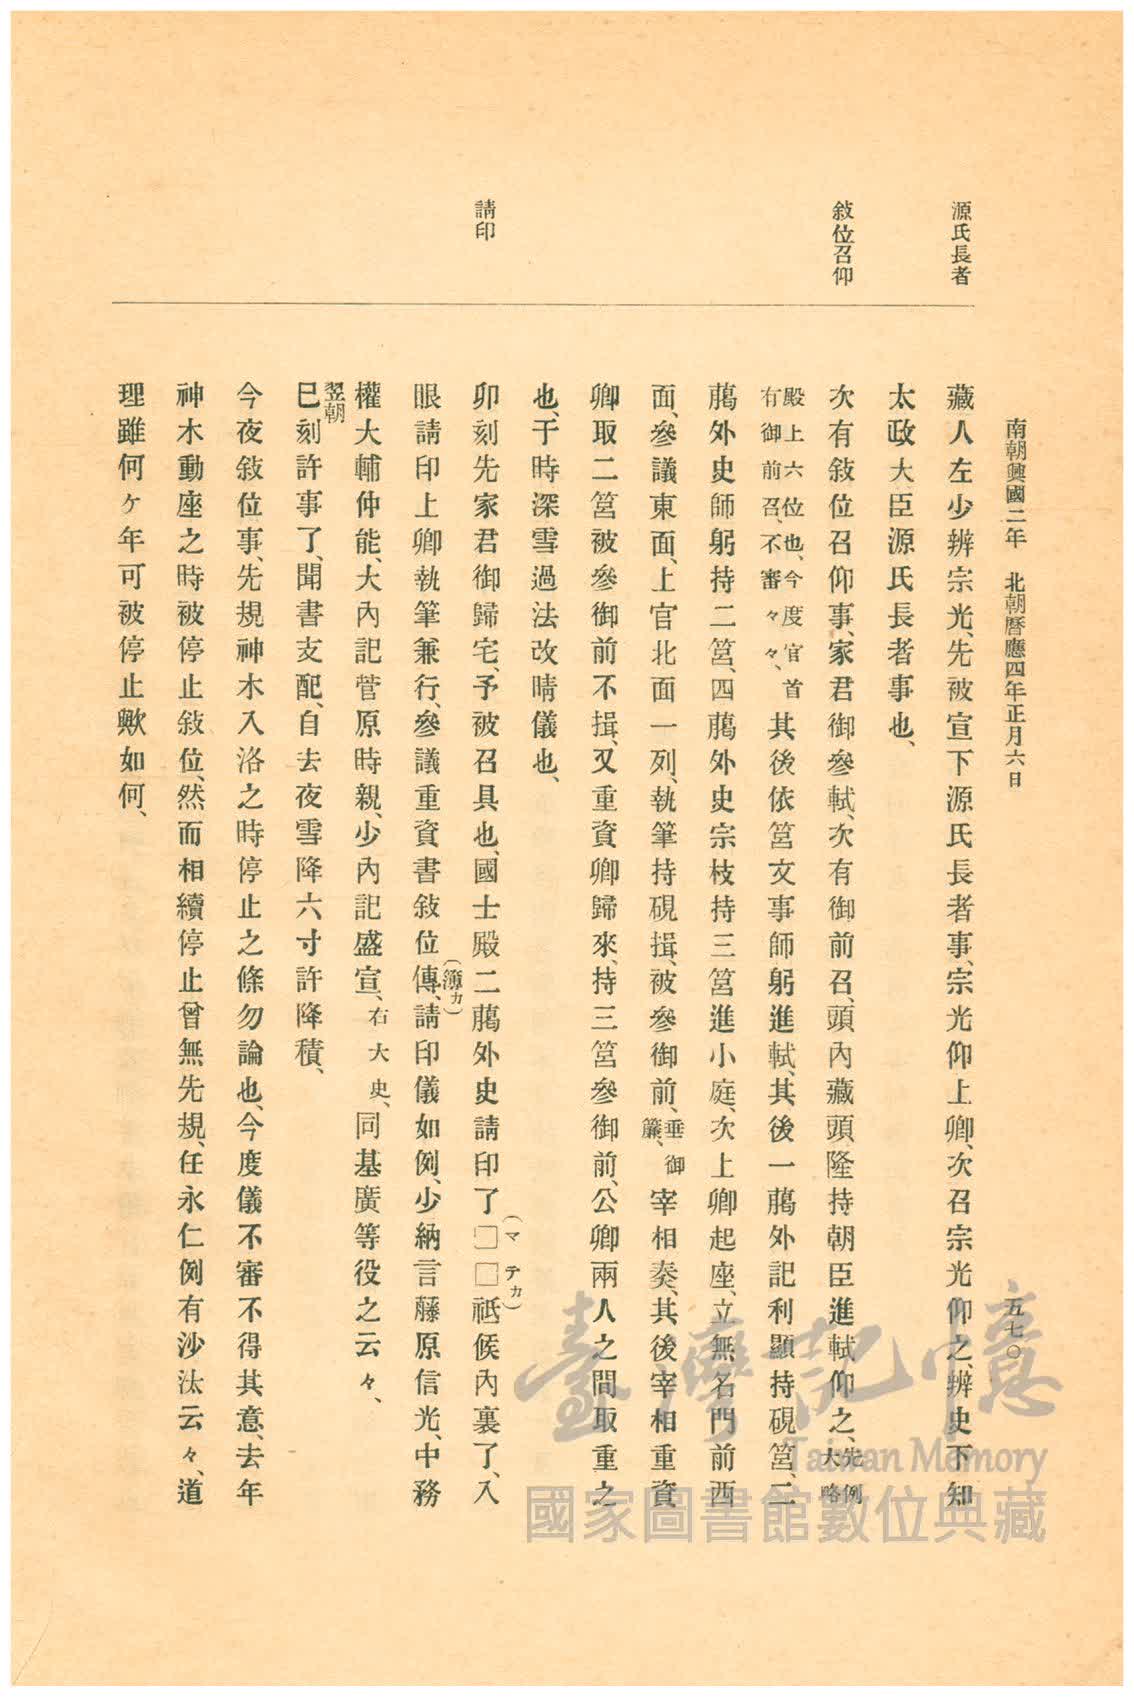 南朝興國二年　北朝曆應四年正月六日
五七〇
源氏長者
敍位召仰
請印
藏人左少辨宗光、先被宣下源氏長者事、宗光仰上卿、次召宗光仰之、辨史下知
太政大臣源氏長者事也、
次有敍位召仰事、家君御參軾、次有御前召、頭內藏頭隆持朝臣進軾仰之、先例大略
殿上六位也、今度官首有御前召、不審々々、其後依筥文事師躬進軾、其後一﨟外記利顯持硯筥、二
﨟外史師躬持二筥、四﨟外史宗枝持三筥進小庭、次上卿起座、立無名門前西
面、參議東面、上官北面一列、執筆持硯揖、被參御前、垂御簾、宰相奏、其後宰相重資
卿取二筥被參御前不揖、又重資卿歸來、持三筥參御前、公卿兩人之間取重之
也、于時深雪過法改晴儀也、
卯刻先家君御歸宅、予被召具也、國士殿二﨟外史請印了□□（マテカ）祗候內裏了、入
眼請印上卿執筆兼行、參議重資書敍位傳（簿カ）、請印儀如例、少納言藤原信光、中務
權大輔仲能、大內記菅原時親、少內記盛宣、右大史、同基廣等役之云々、
翌朝
巳刻許事了、聞書支配、自去夜雪降六寸許降積、
今夜敍位事、先規神木入洛之時停止之條勿論也、今度儀不審不得其意、去年
神木動座之時被停止敍位、然而相續停止曾無先規、任永仁例有沙汰云々、道
理雖何ケ年可被停止歟如何、
臺灣記憶
Taiwan Memory
國家圖書館數位典藏